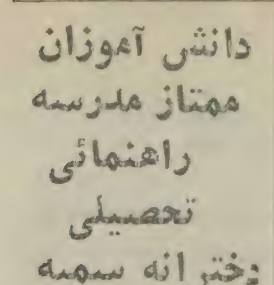 دانش آموزان
ممتاز مدرسه
راهنمائی
تحصیلی
دخترانه سمیه